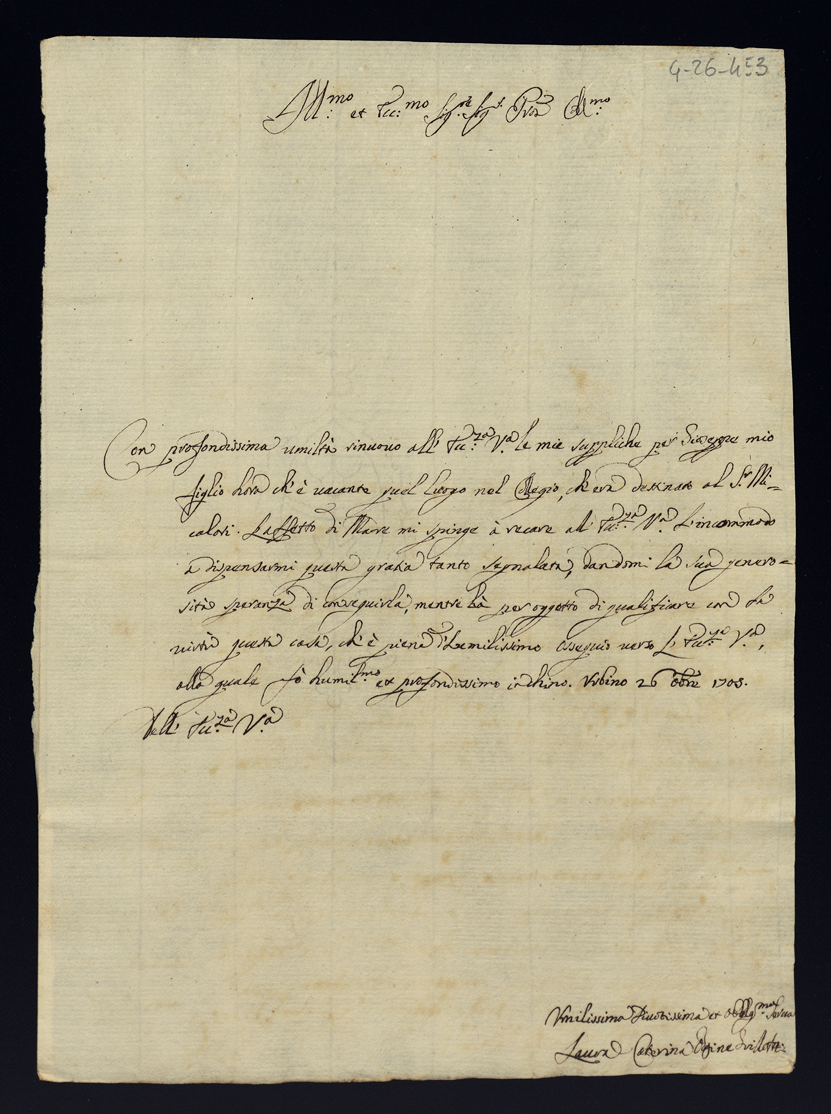 4-26-453
Ill:mo et Ecc:mo Sig.re Sig.r Pron Coll:mo
Con profondissima umiltà rinuovo all' Ecc.za V.a le mie suppliche per Giuseppe mio
figlio hora ch'è vacante quel luogo nel Collegio, ch'era destinato al S.r Mi-
calori. L'affetto di Madre mi spinge à recare all' Ecc.za V.a l'incommodo
a dispensarmi questa grazia tanto segnalata, dandomi la sua genero=
sità speranza di conseguirla, mentre hà per oggetto di qualificare con la
virtù questa casa, ch'è piena d'humilissimo ossequio verso l'Ecc.za V.a,
alla quale fò humil.mo et profondissimo inchino. Urbino 26 8bre 1705.
Dell' Ecc.za V.a
Umilissima Devotissima et Obblig.ma Serva
Laura Caterina